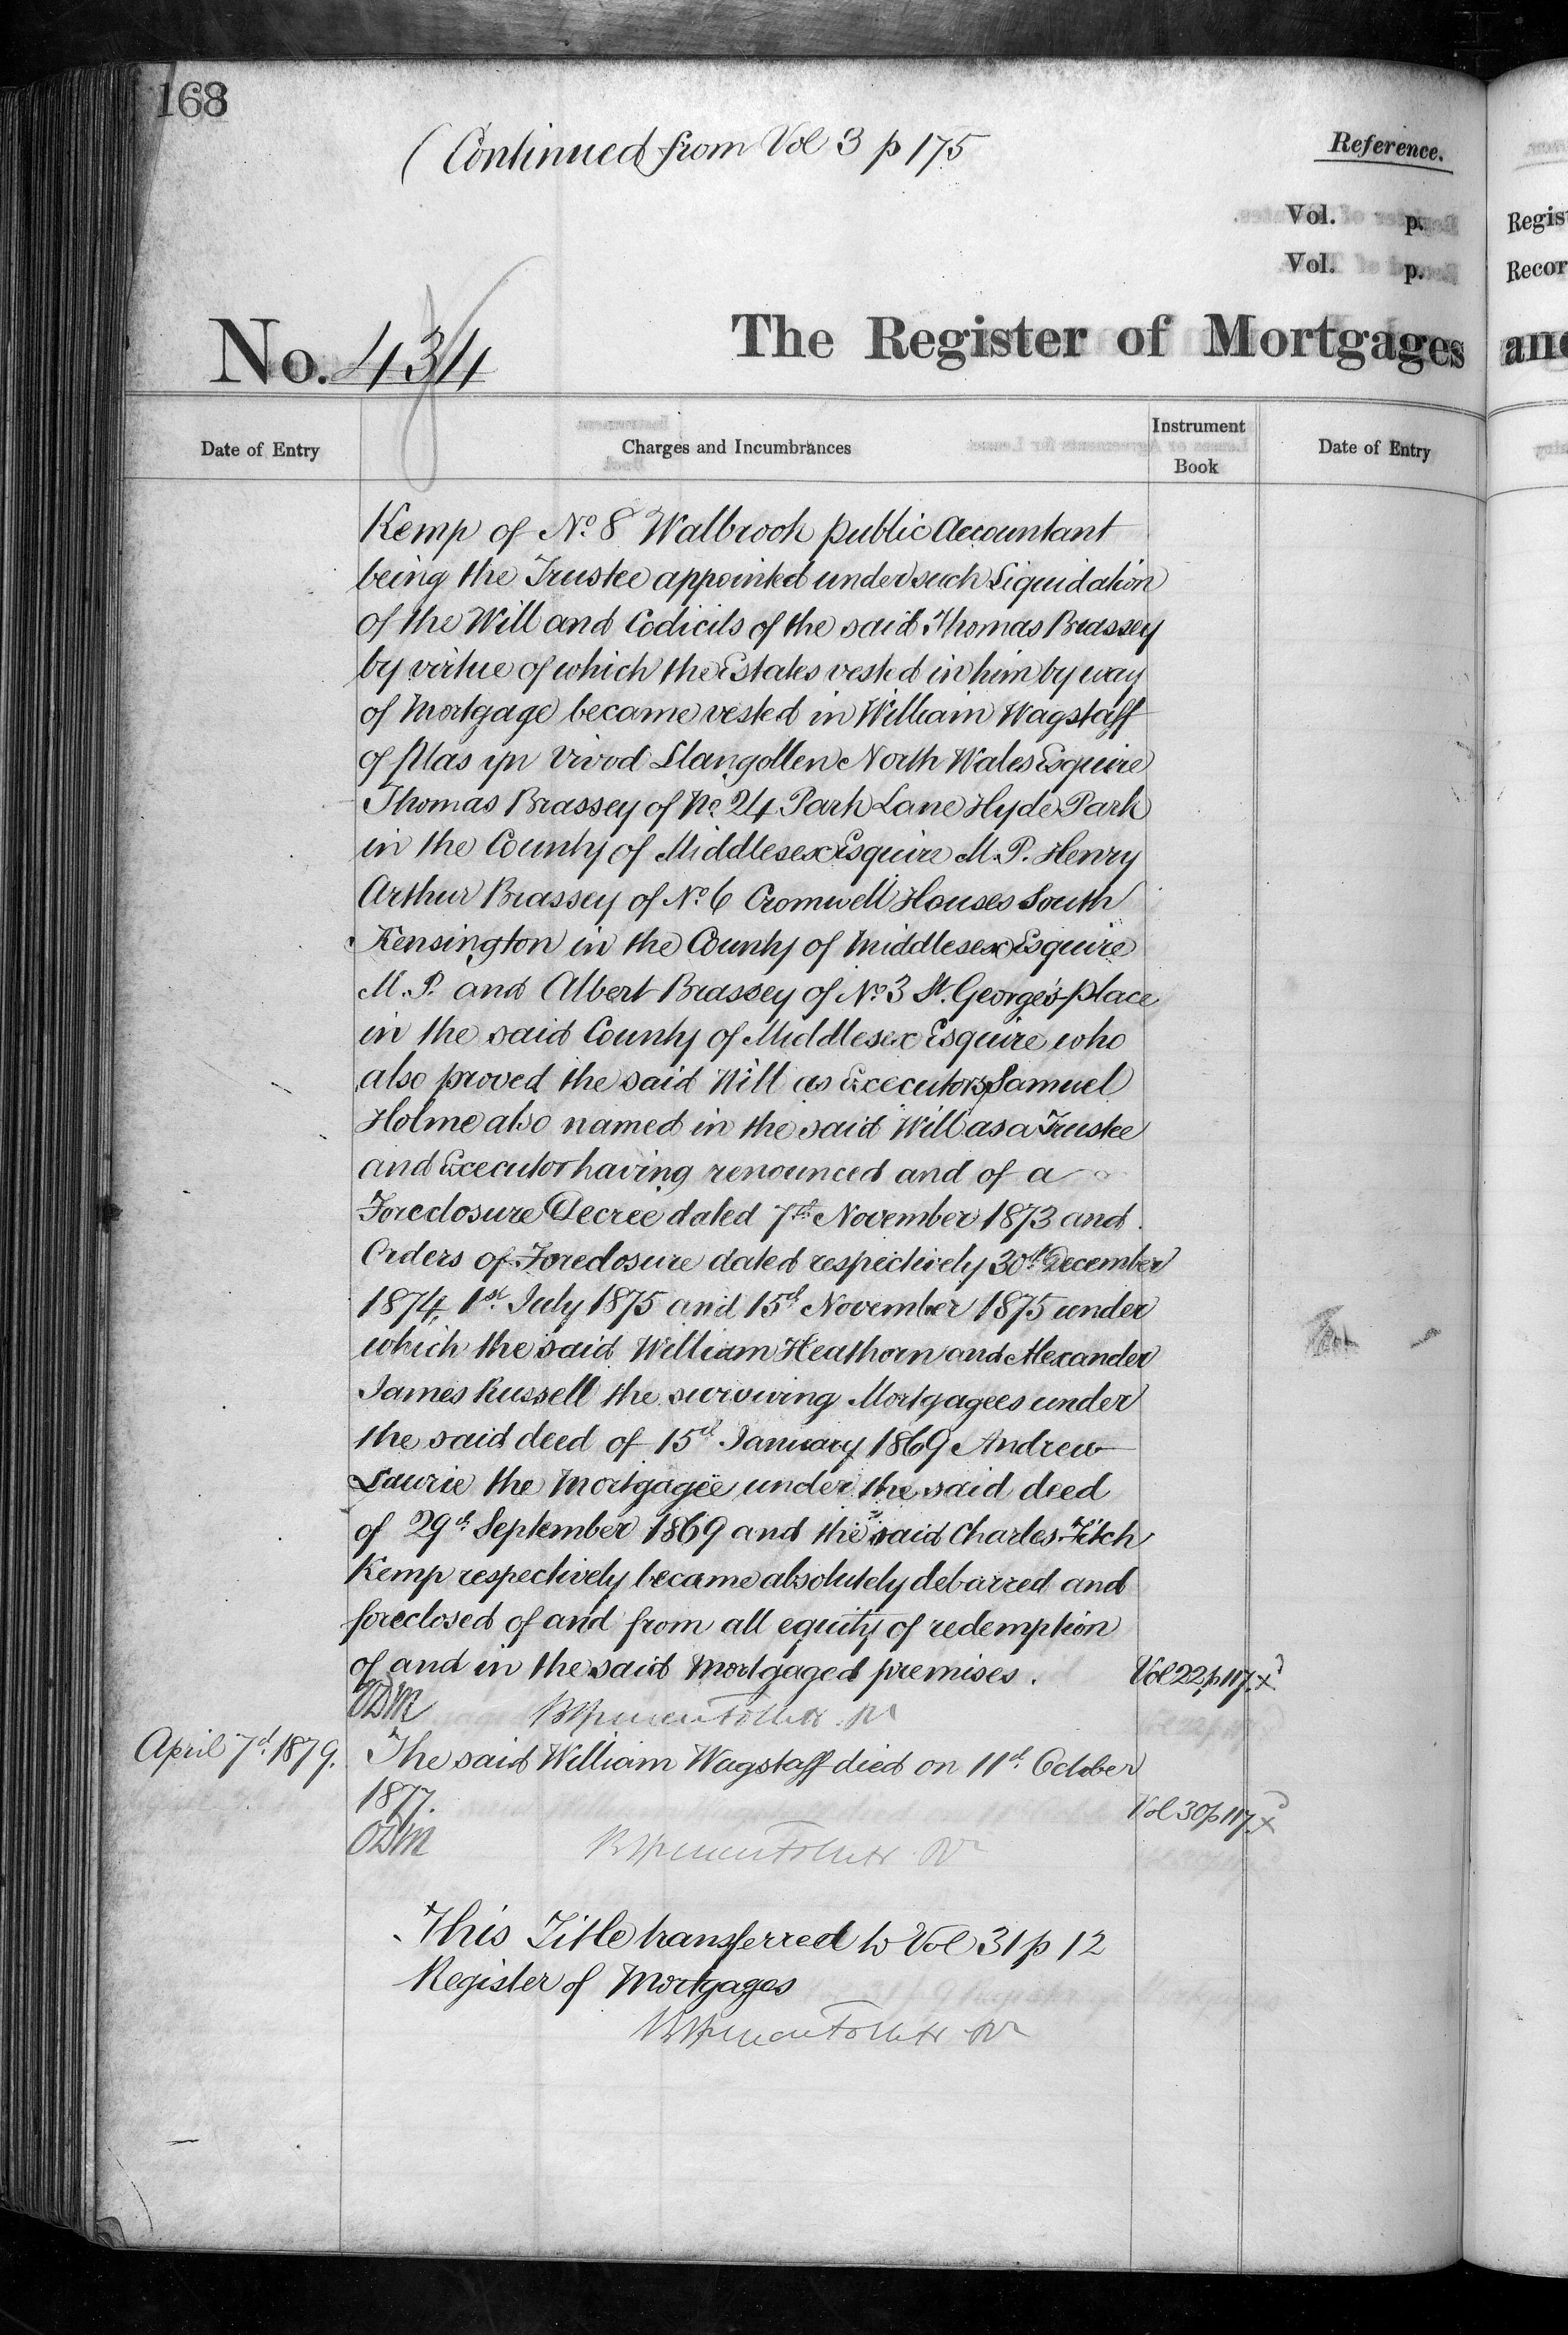 168
(Continued from Vol 3 p 175
Reference.
Vol. p.
Vol. p.
No. 434
The Register of Mortgages and
Regis
Recor
Date of Entry
Charges and Incumbrances
Instrument Book
Date of Entry
Kemp of No. 8 Walbrook public Accountant
being the Trustee appointed under such Liquidation
of the Will and Codicils of the said Thomas Brassey
by virtue of which the Estates vested in him by way
of Mortgage became vested in William Wagstaff
of Plas yn Vivod Llangollen North Wales Esquire
Thomas Brassey of No. 24 Park Lane Hyde Park
in the County of Middlesex Esquire M.P. Henry
Arthur Brassey of No. 6 Cromwell Houses South
Kensington in the County of Middlesex Esquire
M.P. and Albert Brassey of No. 3 St. George's place
in the said County of Middlesex Esquire who
also proved the said Will as Executors, Samuel
Holme also named in the said Will as a Trustee
and Executor having renounced and of a
Foreclosure Decree dated 7th November 1873 and
Orders of Foreclosure dated respectively 30th December
1874, 1st July 1875 and 15th November 1875 under
which the said William Heathorn and Alexander
James Russell the surviving Mortgagees under
the said deed of 15th January 1869 Andrew
Laurie the Mortgagee under the said deed
of 29th September 1869 and the said Charles Fitch
Kemp respectively became absolutely debarred and
foreclosed of and from all equity of redemption
of and in the said Mortgaged premises. Vol 22 p 117. x
April 7th 1879. The said William Wagstaff died on 11th October
1877. Vol 30 p 117. x
This Title transferred to Vol 31 p 12
Register of Mortgages